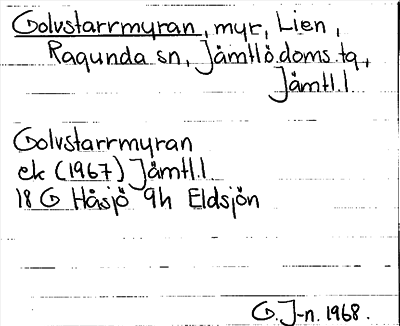 Golvstarrmyran, myr, Lien,
Ragunda sn, Jämtlö.doms.tg,
Jämtl.l.
Golvstarrmyran
ek (1967) Jämtl.l
18 G Håsjö 9h Eldsjön
G. J-n. 1968.